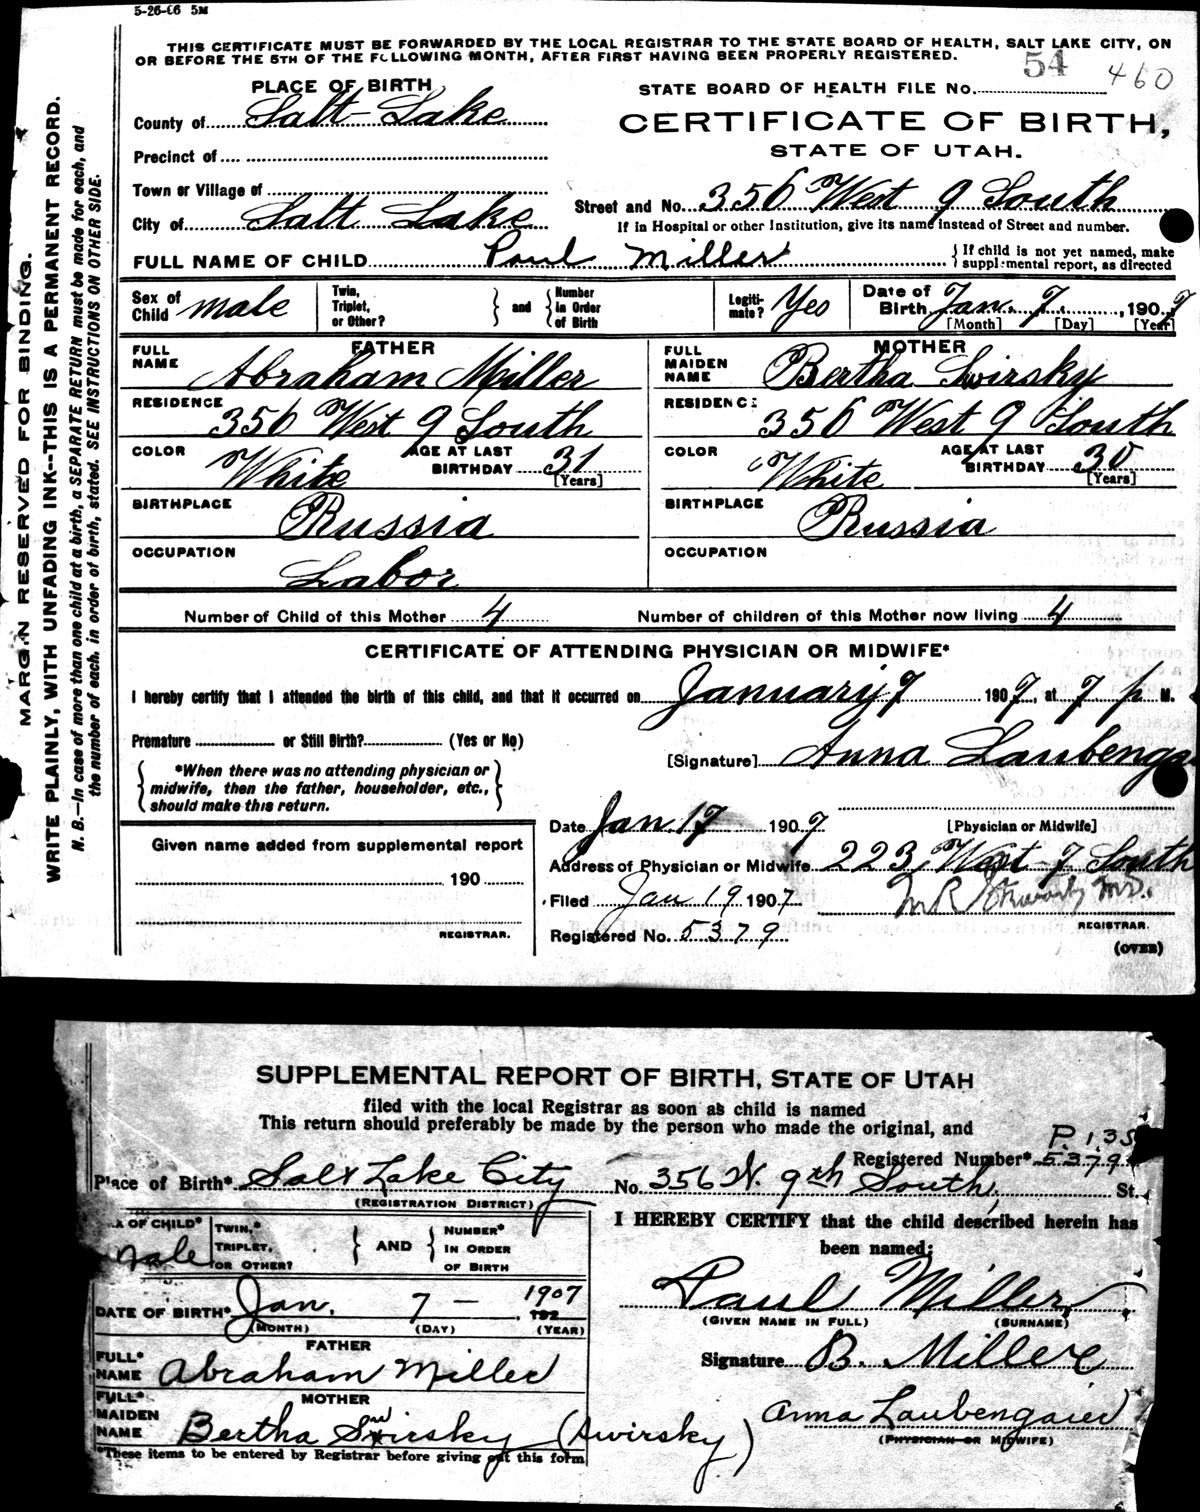 5-26-06 5M
THIS CERTIFICATE MUST BE FORWARDED BY THE LOCAL REGISTRAR TO THE STATE BOARD OF HEALTH, SALT LAKE CITY, ON
OR BEFORE THE 5TH OF THE FOLLOWING MONTH, AFTER FIRST HAVING BEEN PROPERLY REGISTERED.
54 460
PLACE OF BIRTH
STATE BOARD OF HEALTH FILE No.
County of Salt Lake
CERTIFICATE OF BIRTH,
STATE OF UTAH.
Precinct of
Town or Village of
Street and No. 356 West 9 South
City of Salt Lake
If in Hospital or other Institution, give its name instead of Street and number.
FULL NAME OF CHILD Paul Miller
{ If child is not yet named, make
supplemental report, as directed
Sex of Child male
Twin, Triplet, or Other? } and { Number in Order of Birth
Legiti-mate? Yes
Date of Birth Jan. 7, 1907
[Month] [Day] [Year]
FATHER
FULL NAME Abraham Miller
RESIDENCE 356 West 9 South
COLOR White AGE AT LAST BIRTHDAY 31 [Years]
BIRTHPLACE Russia
OCCUPATION Labor
MOTHER
FULL MAIDEN NAME Bertha Swirsky
RESIDENCE 356 West 9 South
COLOR White AGE AT LAST BIRTHDAY 30 [Years]
BIRTHPLACE Russia
OCCUPATION
Number of Child of this Mother 4 Number of children of this Mother now living 4
CERTIFICATE OF ATTENDING PHYSICIAN OR MIDWIFE*
I hereby certify that I attended the birth of this child, and that it occurred on January 7 1907, at 7 p M.
Premature or Still Birth? (Yes or No)
[Signature] Anna Laubenga
{ *When there was no attending physician or
midwife, then the father, householder, etc.,
should make this return. }
Date Jan 17 1907
[Physician or Midwife]
Given name added from supplemental report
190
REGISTRAR.
Address of Physician or Midwife 223 West 7 South
Filed Jan 19 1907
REGISTRAR.
Registered No. 5379
(OVER)
MARGIN RESERVED FOR BINDING.
WRITE PLAINLY, WITH UNFADING INK--THIS IS A PERMANENT RECORD.
N. B.—In case of more than one child at a birth, a SEPARATE RETURN must be made for each, and
the number of each, in order of birth, stated. SEE INSTRUCTIONS ON OTHER SIDE.
SUPPLEMENTAL REPORT OF BIRTH, STATE OF UTAH
filed with the local Registrar as soon as child is named
This return should preferably be made by the person who made the original, and
P. 135
Registered Number* 5379
Place of Birth* Salt Lake City No. 356 W. 9th South, St.
(REGISTRATION DISTRICT)
X OF CHILD* male
TWIN,* TRIPLET, OR OTHER? } AND { NUMBER* IN ORDER OF BIRTH
DATE OF BIRTH* Jan. 7 — 1907 192
(MONTH) (DAY) (YEAR)
FATHER
FULL* NAME Abraham Miller
MOTHER
FULL* MAIDEN NAME Bertha Swirsky (Swirsky)
*These items to be entered by Registrar before giving out this form
I HEREBY CERTIFY that the child described herein has
been named:
Paul Miller
(GIVEN NAME IN FULL) (SURNAME)
Signature B. Miller
Anna Laubengaier
(PHYSICIAN OR MIDWIFE)